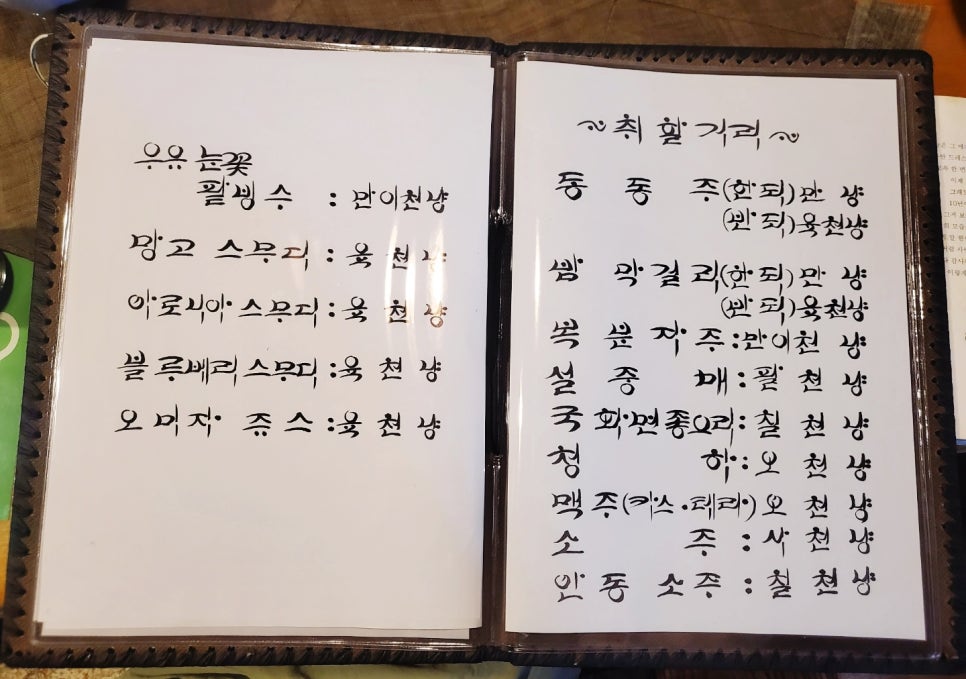 우유 눈꽃
팥빙수 : 만이천냥
망고 스무디 : 육천냥
아로니아 스무디 : 육천냥
블루베리스무디 : 육천냥
오미자 쥬스 : 육천냥
~ 취할거리 ~
동동주(한되)만 냥
(반되)육천냥
밤막걸리(한되)만 냥
(반되)육천냥
복분자주 : 만이천 냥
설중매 : 팔천냥
국화면종오리 : 칠천냥
청하 : 오천냥
맥주(카스·테라) 오천냥
소주 : 사천냥
안동소주 : 칠천냥